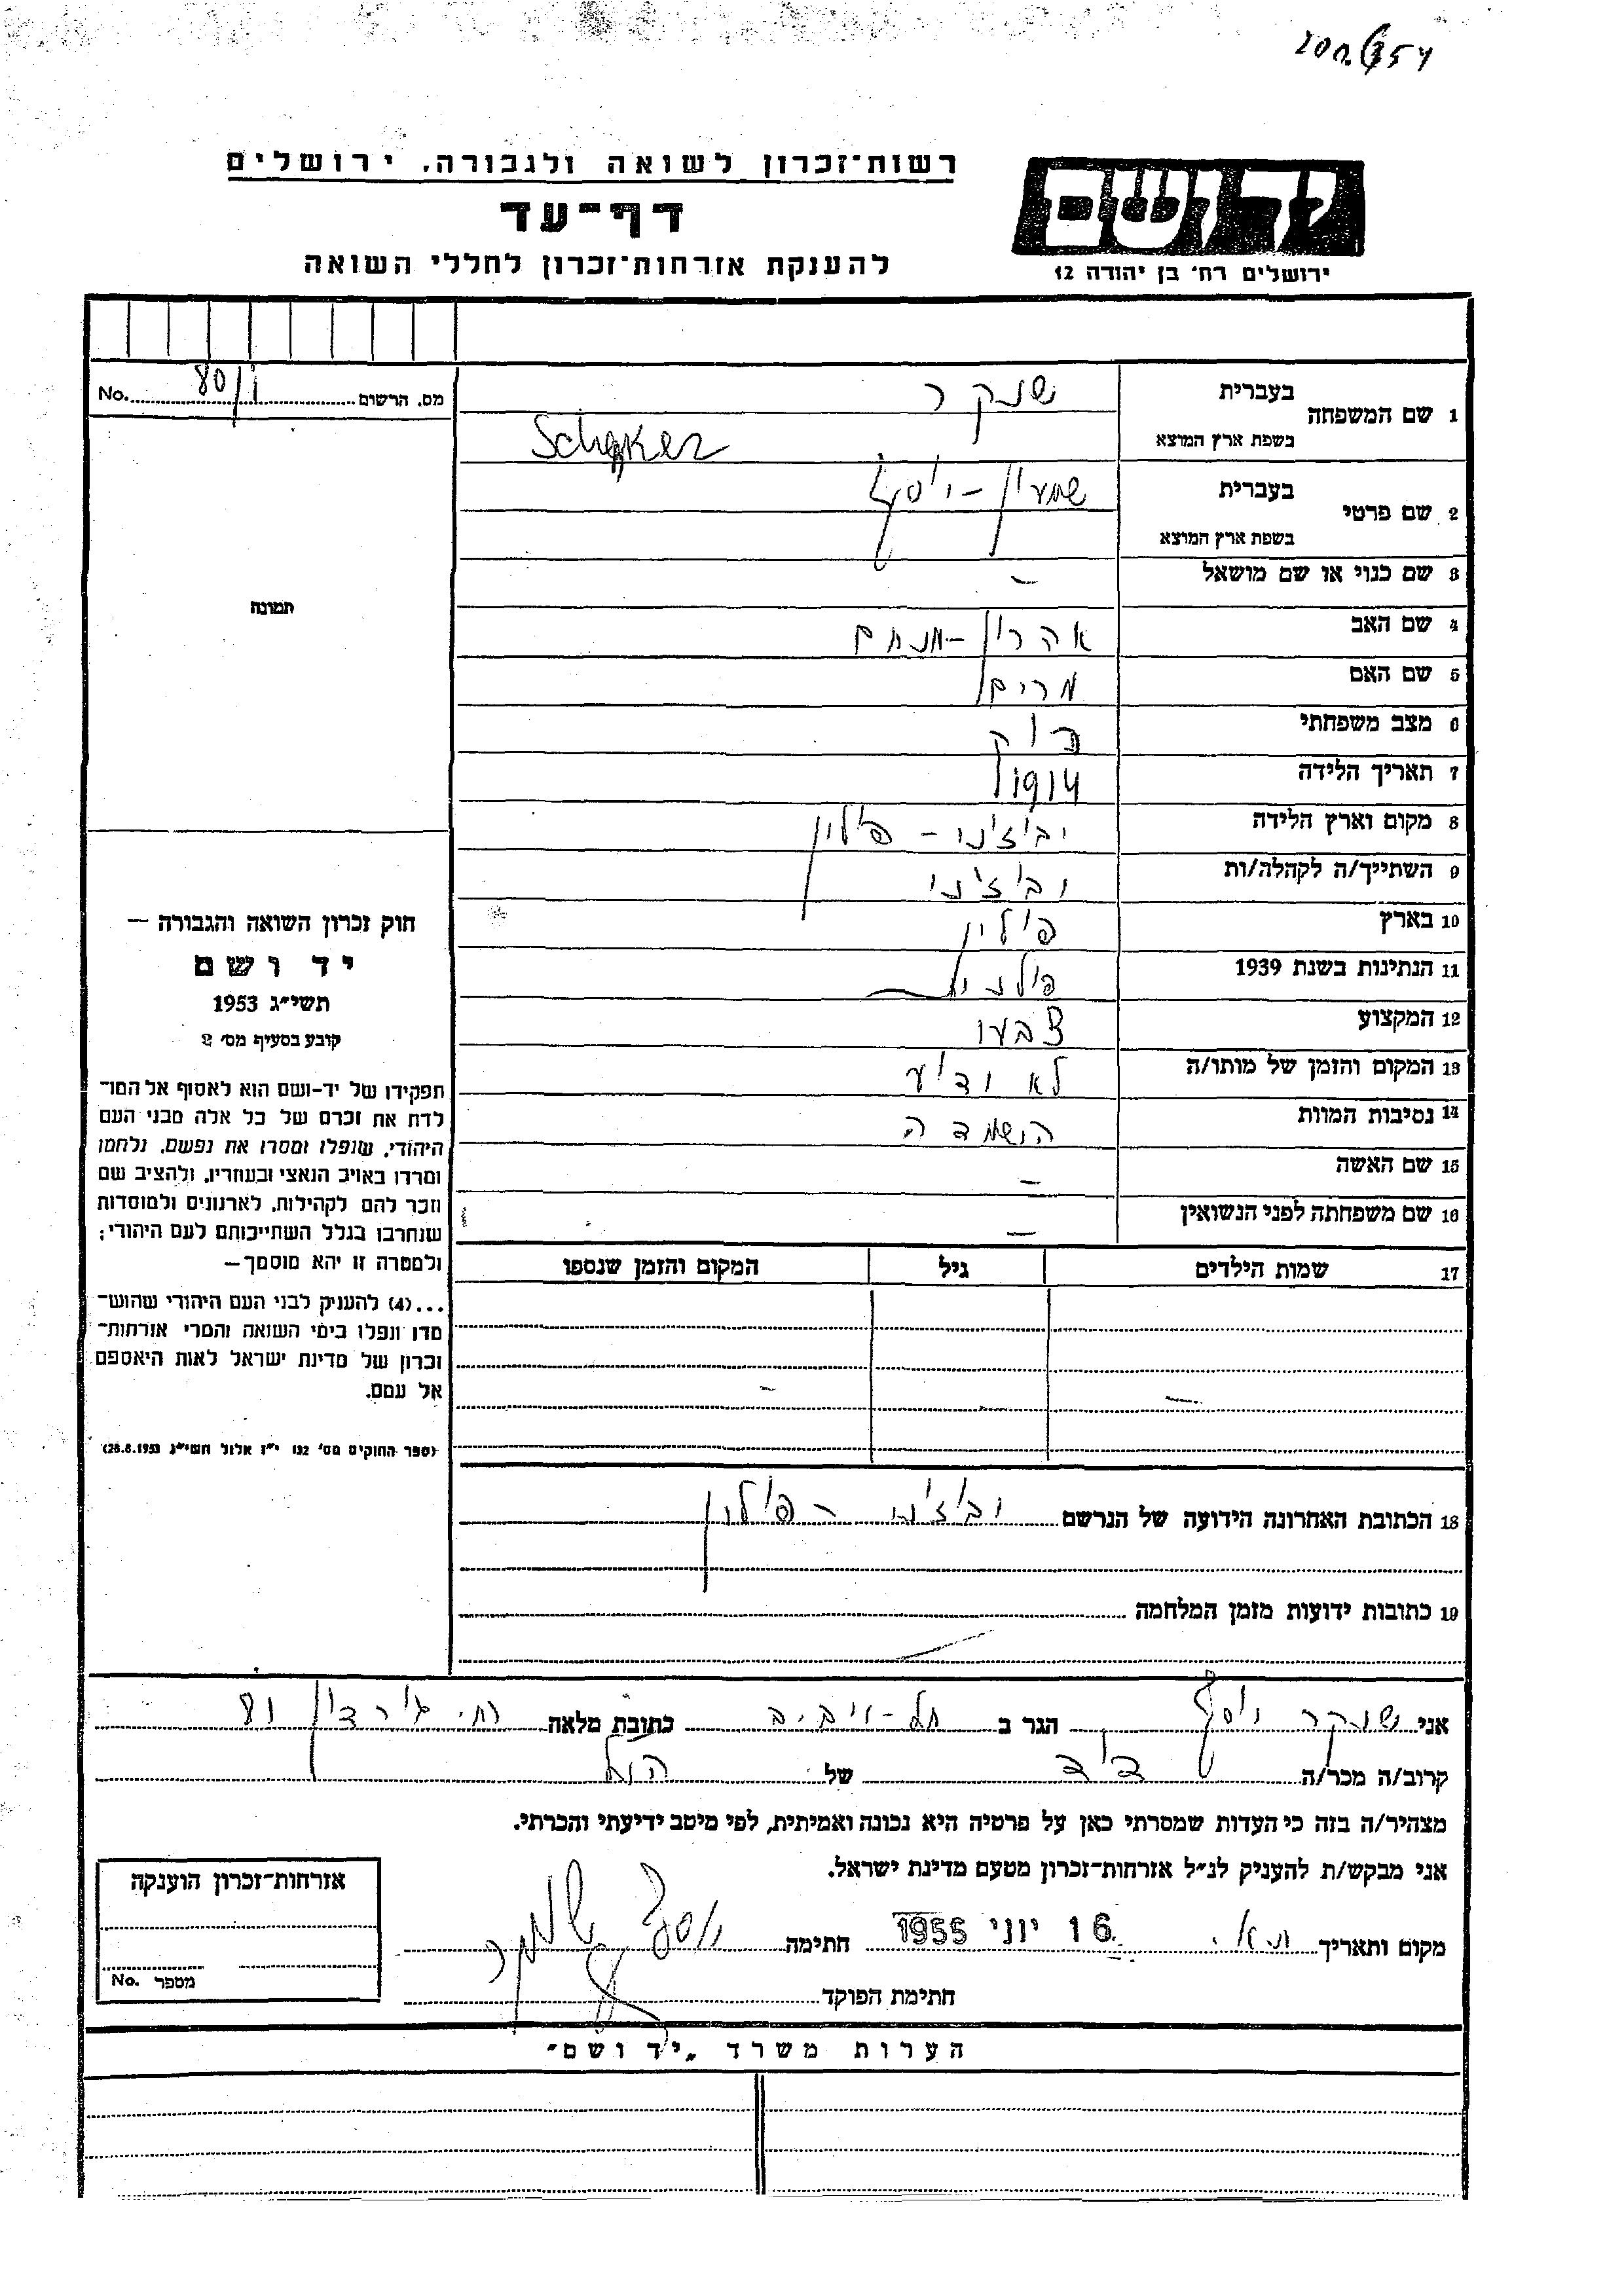 רשות־זכרון לשואה ולגבורה, ירושלים
דף־עד
להענקת אזרחות־זכרון לחללי השואה
יד ושם
ירושלים רח׳ בן יהודה 12
מס. הרשום No.
1 שם המשפחה בעברית שנקר
בשפת ארץ המוצא
2 שם פרטי בעברית שמעון - יוסף
בשפת ארץ המוצא
3 שם כנוי או שם מושאל –
4 שם האב אהרון - מנחם
5 שם האם מרים
6 מצב משפחתי רוק
7 תאריך הלידה 1914
8 מקום וארץ הלידה וביז'ני - פולין
9 השתייך/ה לקהלה/ות וביז'ני
10 בארץ פולין
11 הנתינות בשנת 1939 פולנית
12 המקצוע צבעי
13 המקום והזמן של מותו/ה לא ידוע
14 נסיבות המוות השמדה
15 שם האשה –
16 שם משפחתה לפני הנשואין –
17 שמות הילדים גיל המקום והזמן שנספו
– –
18 הכתובת האחרונה הידועה של הנרשם וביז'ני - פולין
19 כתובות ידועות מזמן המלחמה
תמונה
חוק זכרון השואה והגבורה —
יד ושם
תשי״ג 1953
קובע בסעיף מס׳ 2
תפקידו של יד-ושם הוא לאסוף אל המו־
לדת את זכרם של כל אלה מבני העם
היהודי, שנפלו ומסרו את נפשם, נלחמו
ומרדו באויב הנאצי ובעוזריו, ולהציב שם
וזכר להם לקהילות, לארגונים ולמוסדות
שנחרבו בגלל השתייכותם לעם היהודי;
ולמטרה זו יהא מוסמך—
...(4) להעניק לבני העם היהודי שהוש־
מדו ונפלו בימי השואה והמרי אזרחות־
זכרון של מדינת ישראל לאות היאספם
אל עמם.
(ספר החוקים מס׳ 132 י״ז אלול תשי״ג 28.8.1953)
אני שנקר יוסף הגר ב תל-אביב כתובת מלאה רח׳ גורדון
קרוב/ה מכר/ה דוד של הנ"ל
מצהיר/ה בזה כי העדות שמסרתי כאן על פרטיה היא נכונה ואמיתית, לפי מיטב ידיעתי והכרתי.
אני מבקש/ת להעניק לנ״ל אזרחות־זכרון מטעם מדינת ישראל.
מקום ותאריך ת.א. 16 יוני 1955 חתימה יוסף שנקר
חתימת הפוקד
אזרחות־זכרון הוענקה
מספר No.
הערות משרד „יד ושם״